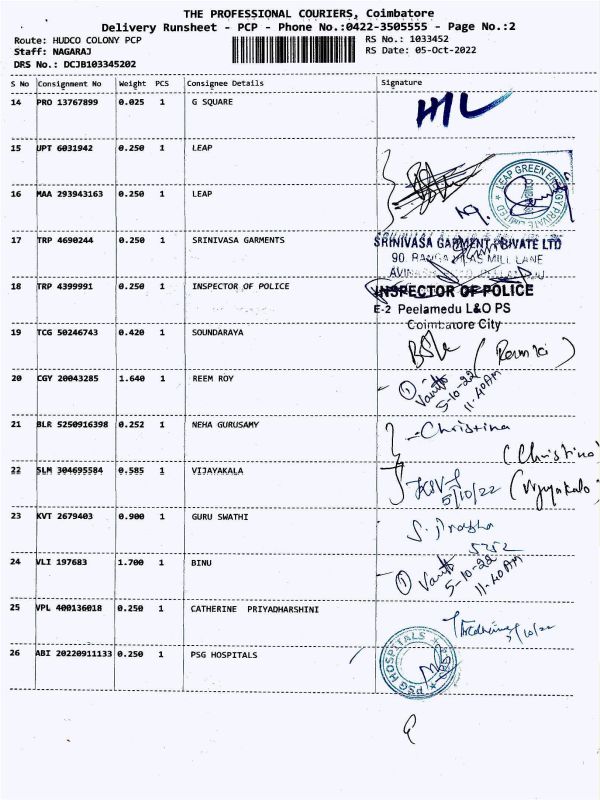 THE PROFESSIONAL COURIERS, Coimbatore
Delivery Runsheet - PCP - Phone No.:0422-3505555 - Page No.:2
Route: HUDCO COLONY PCP RS No.: 1033452
Staff: NAGARAJ RS Date: 05-Oct-2022
DRS No.: DCJB103345202
S No Consignment No Weight PCS Consignee Details Signature
14 PRO 13767899 0.025 1 G SQUARE
15 UPT 6031942 0.250 1 LEAP
16 MAA 293943163 0.250 1 LEAP
LEAP GREEN ENERGY PRIVATE LIMITED
17 TRP 4690244 0.250 1 SRINIVASA GARMENTS
SRINIVASA GARMENT PRIVATE LTD
90, MILL LANE
18 TRP 4399991 0.250 1 INSPECTOR OF POLICE
INSPECTOR OF POLICE
E-2 Peelamedu L&O PS
Coimbatore City
19 TCG 50246743 0.420 1 SOUNDARAYA
20 CGY 20043285 1.640 1 REEM ROY
1 5-10-22
11.40AM
21 BLR 5250916398 0.252 1 NEHA GURUSAMY
Christina
(Christina)
22 SLM 304695584 0.585 1 VIJAYAKALA
5/10/22 (Vijayakala)
23 KVT 2679403 0.900 1 GURU SWATHI
24 VLI 197683 1.700 1 BINU
1 5-10-22
11.40AM
25 VPL 400136018 0.250 1 CATHERINE PRIYADHARSHINI
26 ABI 20220911133 0.250 1 PSG HOSPITALS
PSG HOSPITALS